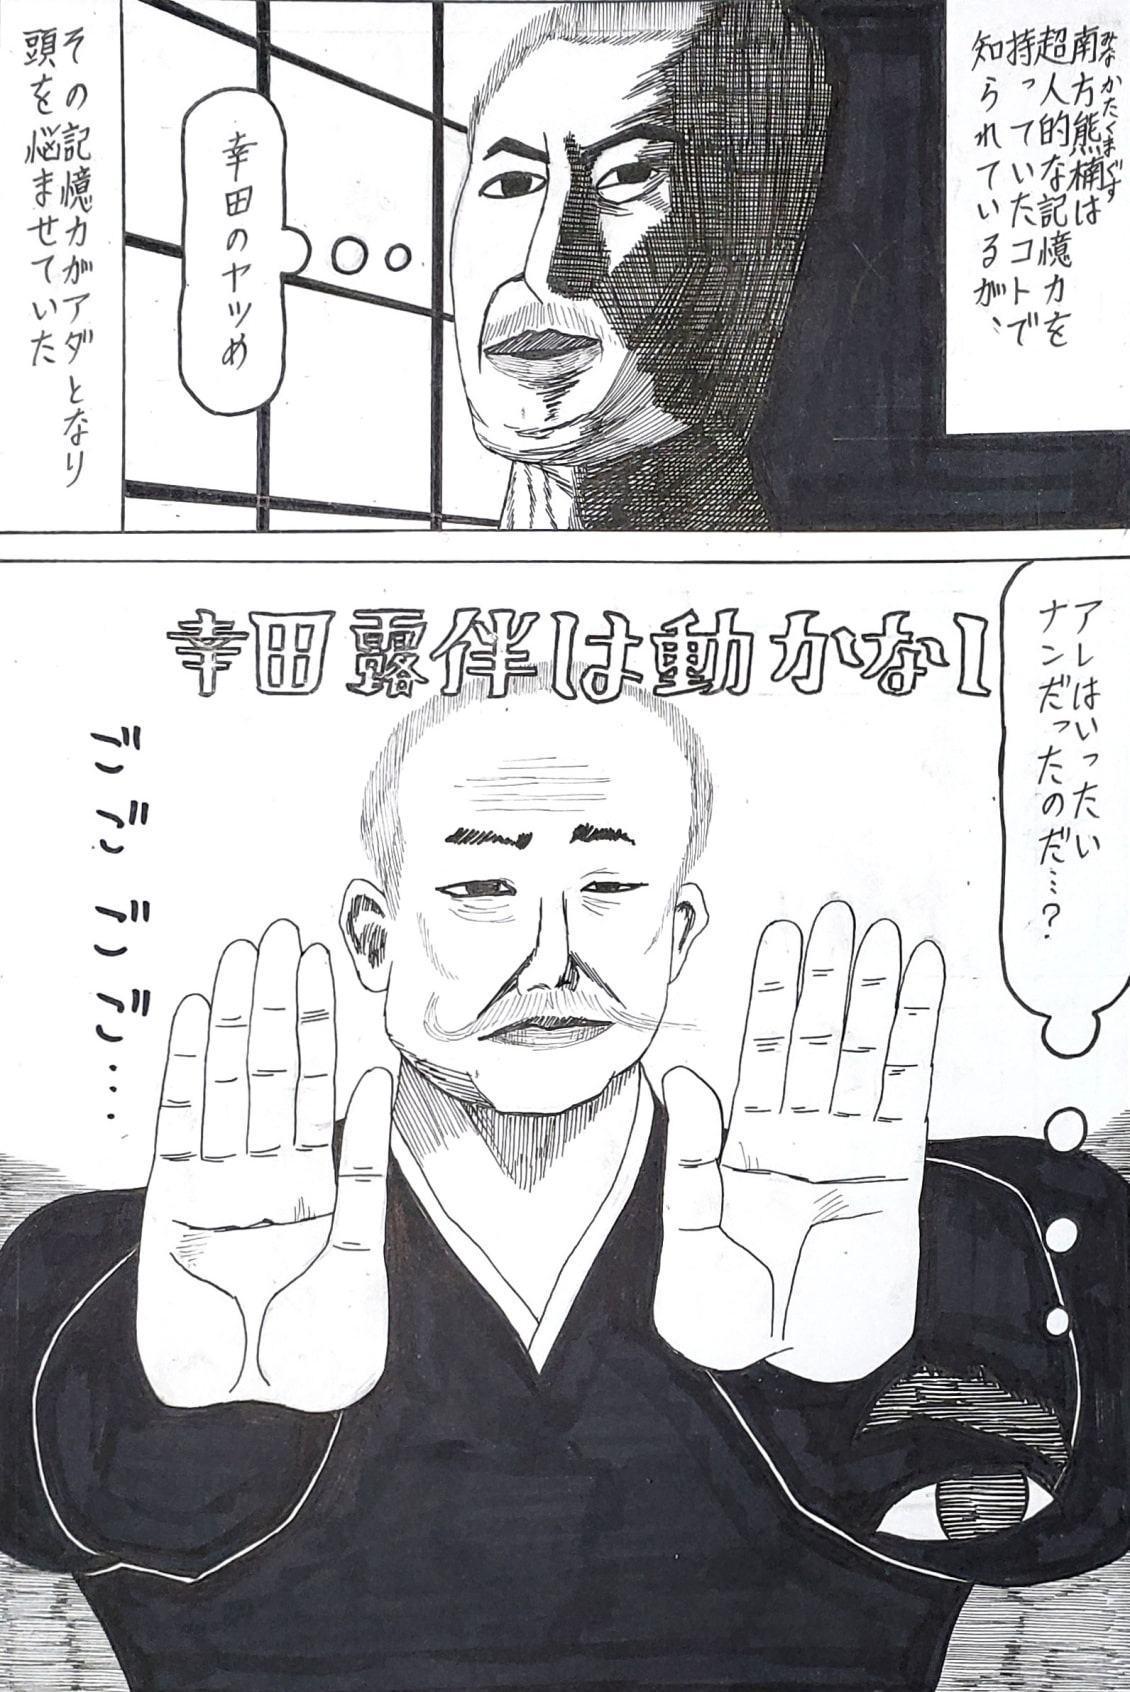 みなかたくまぐす
南方熊楠は
超人的な記憶力を
持っていたコトで
知られているが、
幸田のヤツめ
その記憶力がアダとなり
頭を悩ませていた
アレはいったい
ナンだったのだ…?
幸田露伴は動かない
デンデンデンデン…